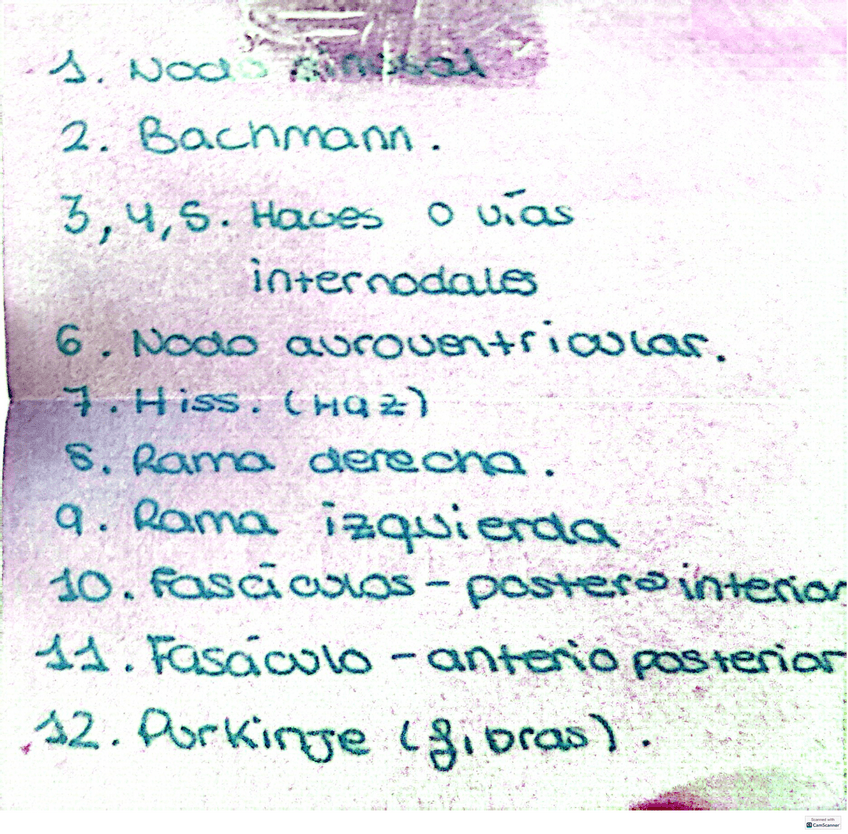 1. Nodo sinusal
2. Bachmann.
3, 4, 5. Haces o vías
internodales
6. Nodo auroventricular.
7. Hiss. (Haz)
8. Rama derecha.
9. Rama izquierda
10. Fascículos - postero interior
11. Fascículo - anterio posterior
12. Purkinje (fibras).
Scanned with
CamScanner